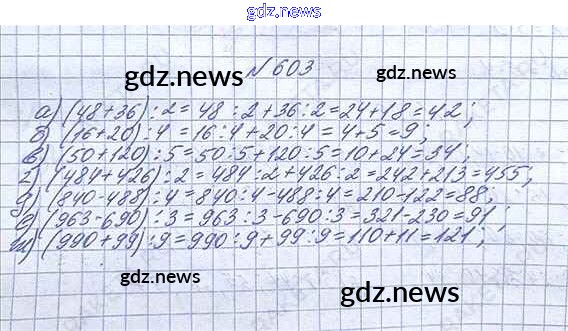 gdz.news
gdz.news №603 gdz.news
а) (48+36):2=48:2+36:2=24+18=42;
б) (16+20):4=16:4+20:4=4+5=9;
в) (50+120):5=50:5+120:5=10+24=34;
г) (484+426):2=484:2+426:2=242+213=455;
д) (840-488):4=840:4-488:4=210-122=88;
е) (963-690):3=963:3-690:3=321-230=91;
ж) (990+99):9=990:9+99:9=110+11=121;
gdz.news
gdz.news